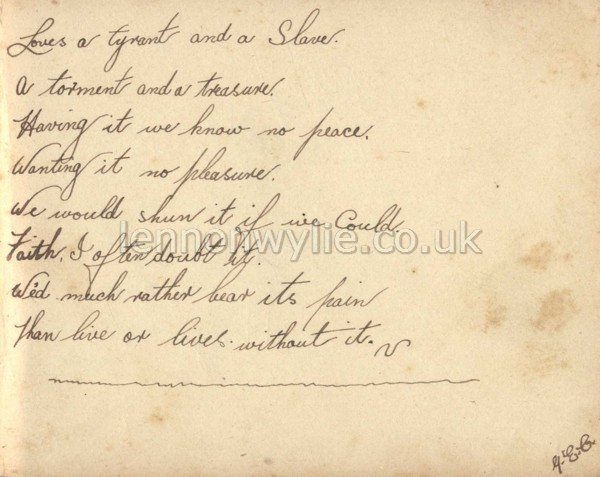 Loves a tyrant and a Slave.
A torment and a treasure.
Having it we know no peace.
Wanting it no pleasure.
We would shun it if we Could.
Faith, I often doubt it.
We'd much rather bear its pain
Than live or lives without it.
lennonwylie.co.uk
G.E.C.